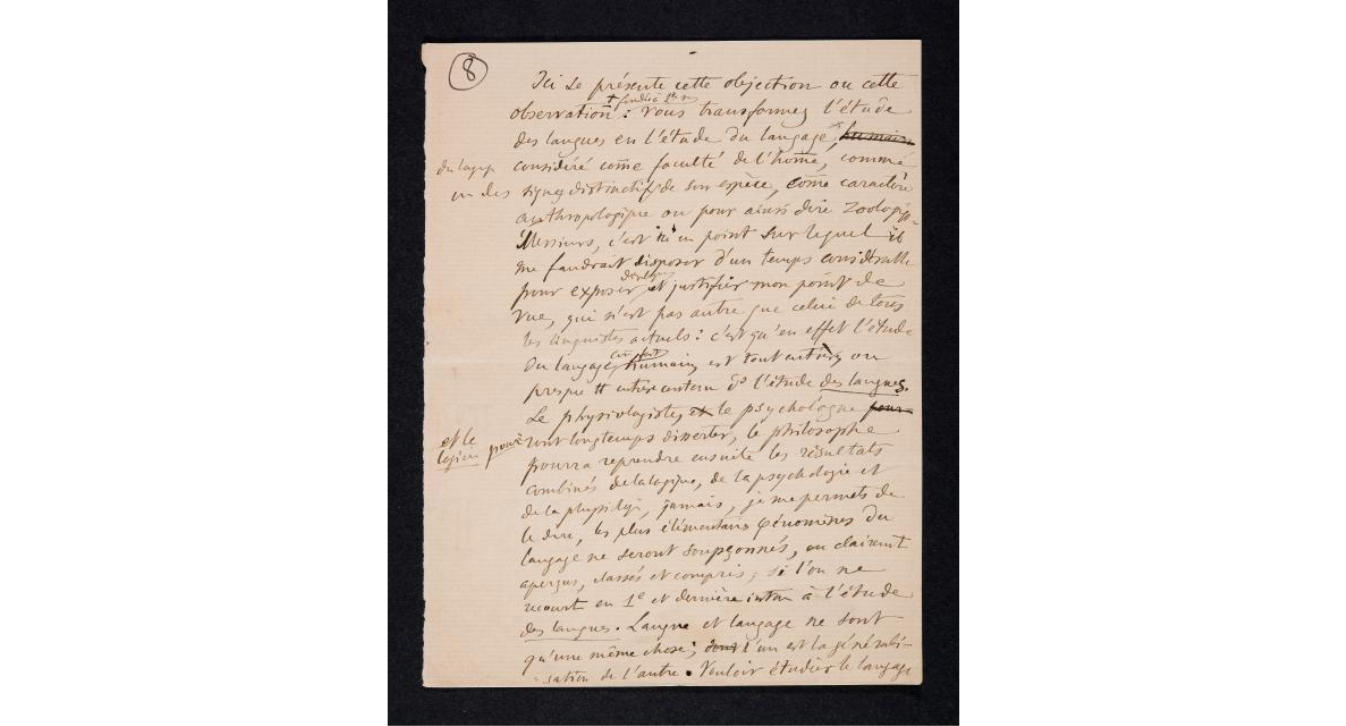 8
Ici se présente cette objection ou cette
observation : Vous transformez l'étude
des langues en l'étude du langage, humain
considéré come faculté de l'home, comme
un des signes distinctifs de son espèce, come caractère
anthropologique ou pour ainsi dire zoologiq.
Messieurs, c'est ici un point sur lequel il
me faudrait disposer d'un temps considérable
développer
pour exposer et justifier mon point de
vue, qui n'est pas autre que celui de tous
les linguistes actuels : c'est qu'en effet l'étude
du langage humain est tout entière ou
presque tt entière contenu ds l'étude des langues.
Le physiologiste, et le psychologue pour
et le logicien pour-ront longtemps disserter, le philosophe
pourra reprendre ensuite les résultats
combinés de la logique, de la psychologie et
de la physiologie, jamais, je me permets de
le dire, les plus élémentaires phénomènes du
langage ne seront soupçonnés, ou clairement
aperçus, classés et compris, si l'on ne
recourt en 1e et dernière à l'étude
des langues. Langue et langage ne sont
qu'une même chose ; dont l'un est la générali-
sation de l'autre. Vouloir étudier le langage